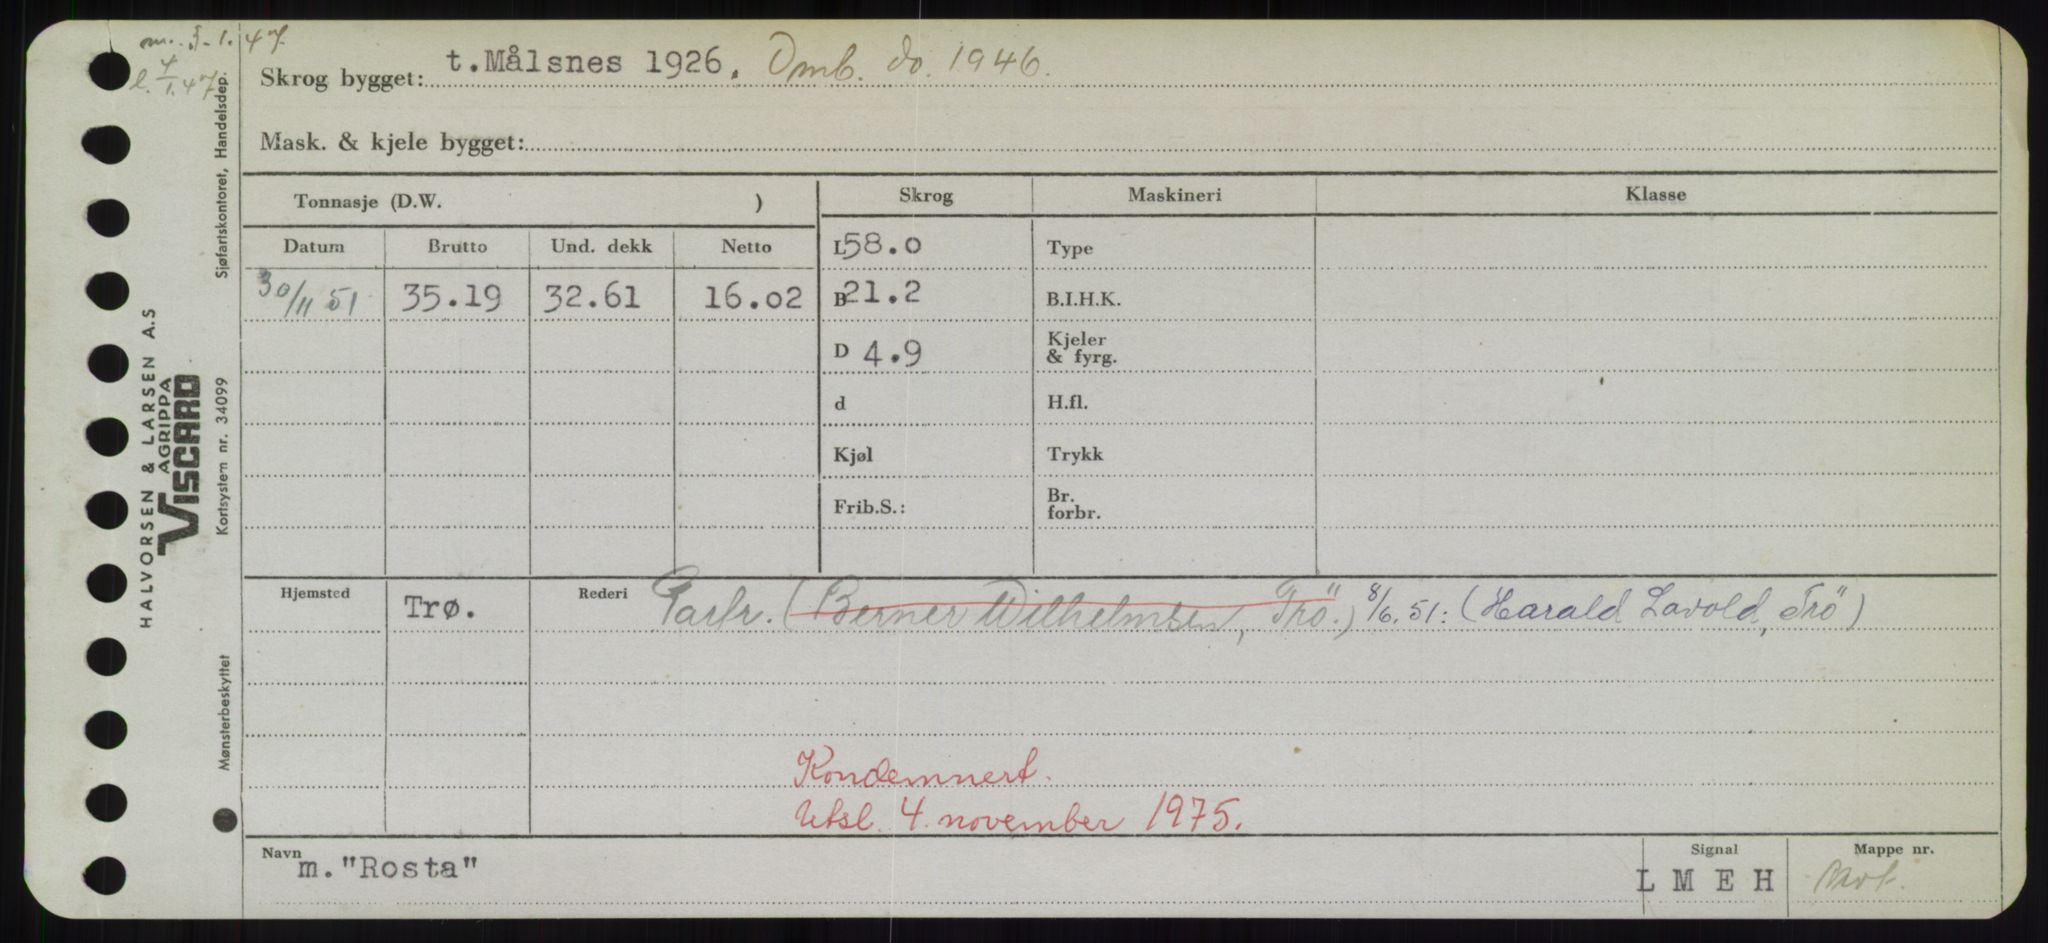 m. 3-1.47.
l. 7/1.47
Skrog bygget: t. Målsnes 1926. Omb. do. 1946.
Mask. & kjele bygget:
Tonnasje (D.W. ) Skrog Maskineri Klasse
Datum Brutto Und. dekk Netto L 58.0 Type
30/11 51 35.19 32.61 16.02 B 21.2 B.I.H.K.
D 4.9 Kjeler & fyrg.
d H.fl.
Kjøl Trykk
Frib.S.: Br. forbr.
Hjemsted Trø. Rederi Partr. (Berner Wilhelmsen, Trö.) 8/6.51: (Harald Lavold, Trö)
Kondemnert.
Utsl. 4. november 1975.
Navn m. "Rosta" Signal L M E H Mappe nr.
Sjøfartskontoret, Handelsdep.
Kortsystem nr. 34099
Mønsterbeskyttet
HALVORSEN & LARSEN A.S
AGRIPPA
VISCARD